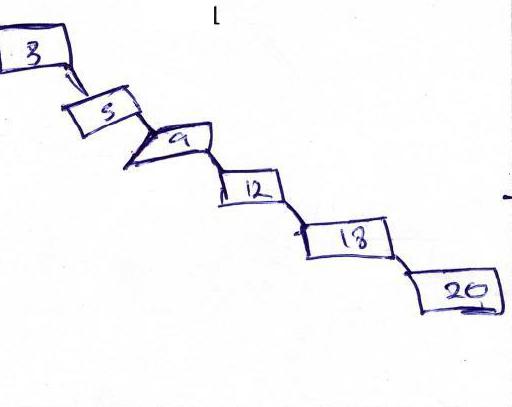 3
5
9
12
18
20